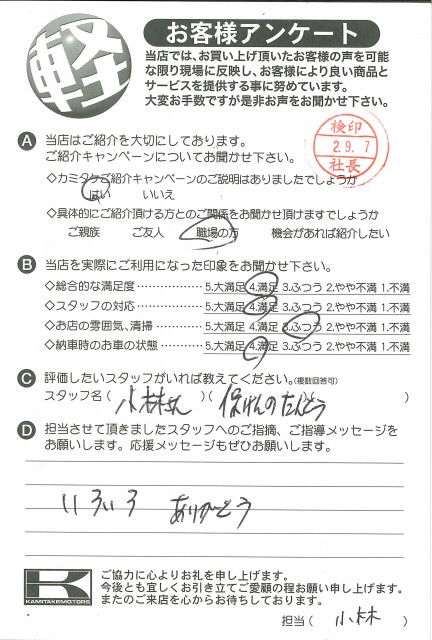 軽
お客様アンケート
当店では、お買い上げ頂いたお客様の声を可能
な限り現場に反映し、お客様により良い商品と
サービスを提供する事に努めています。
大変お手数ですが是非お声をお聞かせ下さい。
検印
2 9. 7
社長
A 当店はご紹介を大切にしております。
ご紹介キャンペーンについてお聞かせ下さい。
◇カミタケご紹介キャンペーンのご説明はありましたでしょうか
はい いいえ
◇具体的にご紹介頂ける方とのご関係をお聞かせ頂けますでしょうか
ご親族 ご友人 職場の方 機会があれば紹介したい
B 当店を実際にご利用になった印象をお聞かせ下さい。
◇総合的な満足度 ‥‥‥‥‥‥ 5.大満足 4.満足 3.ふつう 2.やや不満 1.不満
◇スタッフの対応 ‥‥‥‥‥‥ 5.大満足 4.満足 3.ふつう 2.やや不満 1.不満
◇お店の雰囲気、清掃 ‥‥‥‥ 5.大満足 4.満足 3.ふつう 2.やや不満 1.不満
◇納車時のお車の状態 ‥‥‥‥ 5.大満足 4.満足 3.ふつう 2.やや不満 1.不満
C 評価したいスタッフがいれば教えてください。(複数回答可)
スタッフ名 ( 小林さん )( ほけんのたんとう )
D 担当させて頂きましたスタッフへのご指摘、ご指導メッセージを
お願いします。応援メッセージもぜひお願いします。
いろいろ ありがとう
K
KAMITAKEMOTORS
ご協力に心よりお礼を申し上げます。
今後とも宜しくお引き立てご愛顧の程お願い申し上げます。
またのご来店を心からお待ちしております。
担当 ( 小林 )